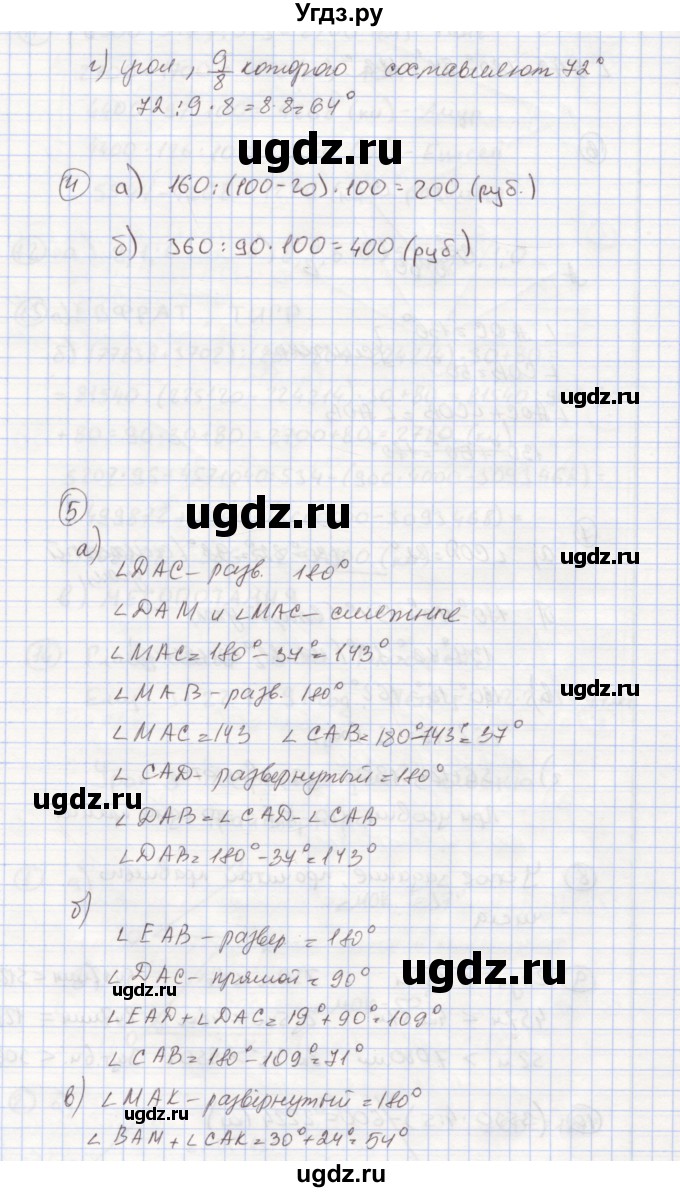 Угдз.ру
г) угол, 9/8 которого составляют 72°
72 : 9 · 8 = 8·8 = 64°
ugdz.ru
4 а) 160 : (100-20) · 100 = 200 (руб.)
б) 360 : 90 · 100 = 400 (руб.)
ugdz.ru
5
ugdz.ru
а)
∠DAC - разв. 180°
∠DAM и ∠MAC - смежные
∠MAC = 180° - 37° = 143°
ugdz.ru
∠MAB - разв. 180°
∠MAC = 143 ∠CAB = 180°-143° = 37°
∠CAD - развернутый = 180°
ugdz.ru
∠DAB = ∠CAD - ∠CAB
∠DAB = 180° - 37° = 143°
б)
∠EAB - развер = 180°
∠DAC - прямой = 90°
ugdz.ru
ugdz.ru
∠EAD + ∠DAC = 19° + 90° = 109°
∠CAB = 180° - 109° = 71°
в) ∠MAK - развёрнутый = 180°
ugdz.ru
∠BAM + ∠CAK = 30° + 24° = 54°
ugdz.ru